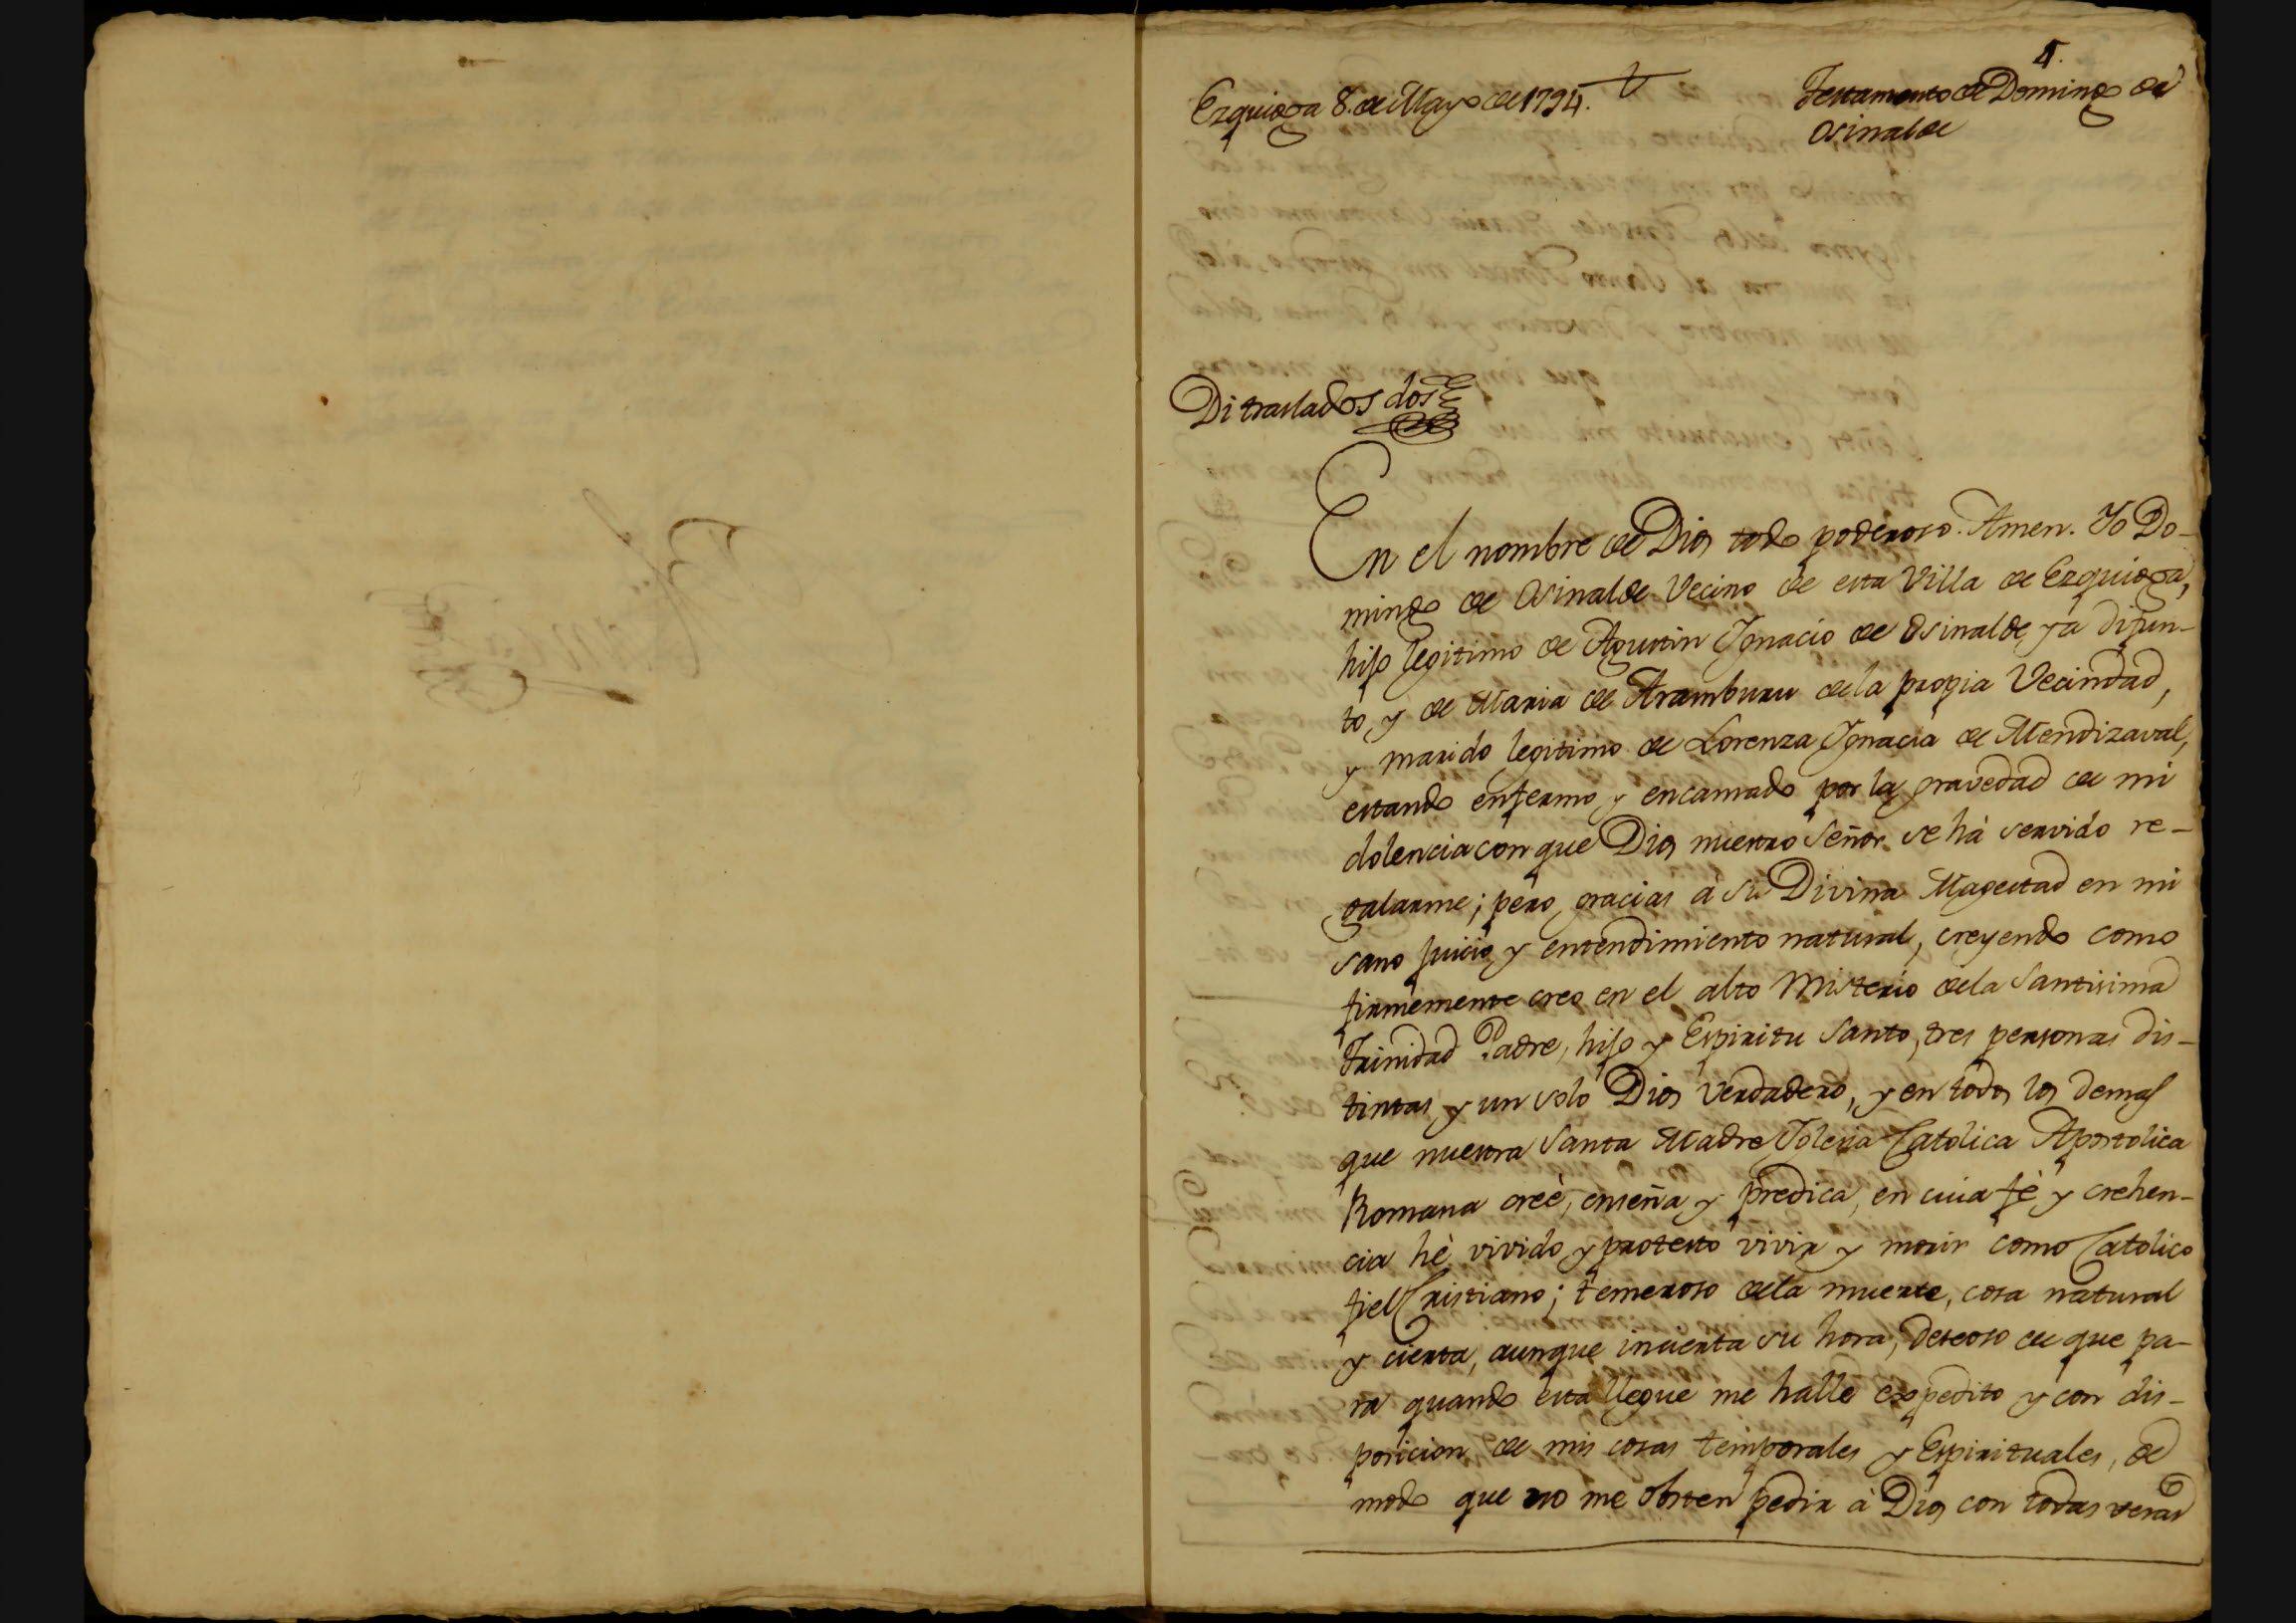 4.
Ezquioga 8. de Mayo de 1794.
Testamento de Domingo de
Osinalde
Di traslados dos
En el nombre de Dios todo poderoso. Amen. Yo Do-
mingo de Osinalde Vecino de esta Villa de Ezquioga,
hijo legitimo de Agustin Ignacio de Osinalde ya difun-
to, y de Maria de Aramburu de la propia Vecindad,
y marido legitimo de Lorenza Ignacia de Mendizaval,
estando enfermo y encamado por la gravedad de mi
dolencia con que Dios nuestro Señor se há servido re-
galarme; pero, gracias à su Divina Magestad en mi
sano juicio y entendimiento natural, creyendo como
firmemente creo en el alto Misterio de la Santisima
Trinidad Padre, hijo y Espiritu Santo, tres personas dis-
tintas y un solo Dios verdadero, y en todos los demas
que nuestra Santa Madre Iglesia Catolica Apostolica
Romana creè, enseña y predica, en cuia fè y crehen-
cia hè vivido y protesto vivir y morir como Catolico
fiel Cristiano; temeroso de la muerte, cosa natural
y cierta, aunque incierta su hora, deseoso de que pa-
ra quando esta llegue me halle expedito y con dis-
posicion de mis cosas temporales y Espirituales, de
modo que no me obsten pedir à Dios con todas veras